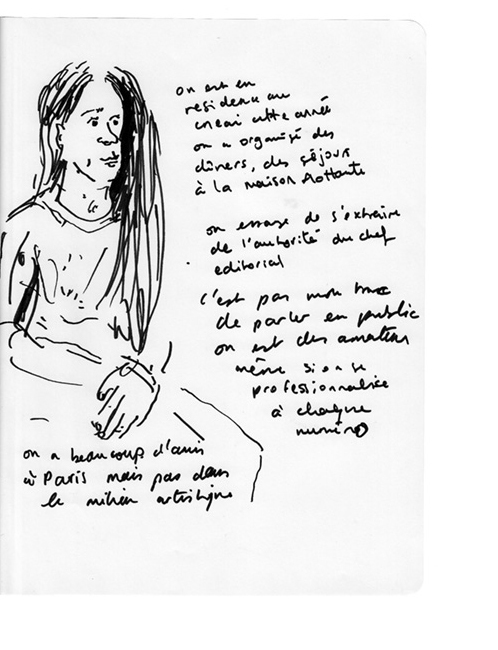 on est en
résidence au
cneai cette année
on a organisé des
dîners, des séjours
à la maison flottante
on essaye de s'extraire
de l'autorité du chef
editorial
c'est pas mon truc
de parler en public
on est des amateurs
même si on se
professionnalise
à chaque
numéro
on a beaucoup d'amis
à Paris mais pas dans
le milieu artistique